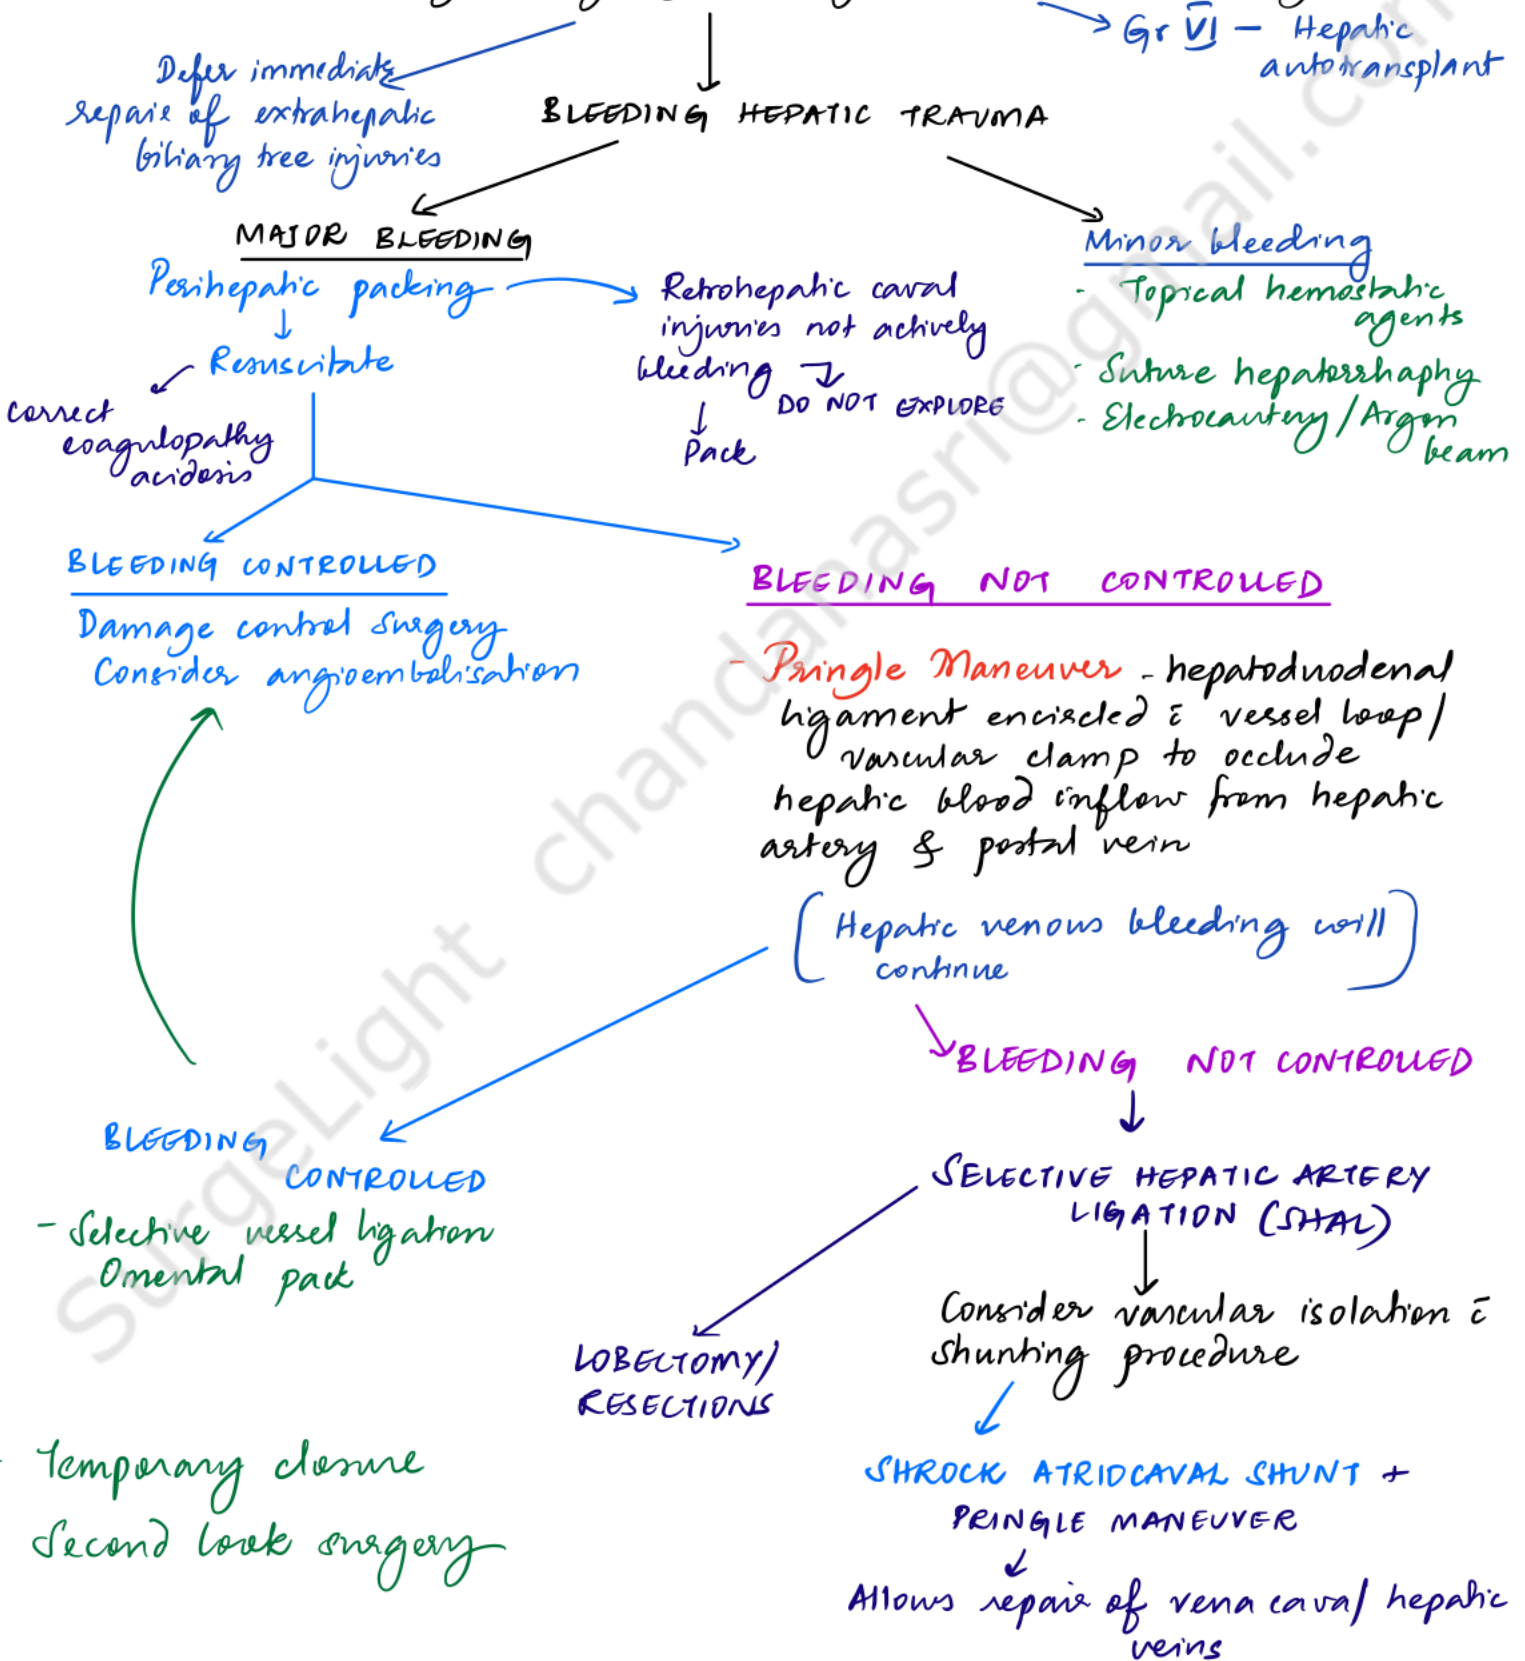 Gr VI - Hepatic
autotransplant
Defer immediate
repair of extrahepatic
biliary tree injuries
BLEEDING HEPATIC TRAUMA
MAJOR BLEEDING
Perihepatic packing
Resuscitate
correct
coagulopathy
acidosis
Retrohepatic caval
injuries not actively
bleeding
DO NOT EXPLORE
Pack
Minor bleeding
- Topical hemostatic
agents
- Suture hepatorrhaphy
- Electrocautery / Argon
beam
BLEEDING CONTROLLED
Damage control surgery
Consider angioembolisation
BLEEDING NOT CONTROLLED
- Pringle Maneuver - hepatoduodenal
ligament encircled c̄ vessel loop/
vascular clamp to occlude
hepatic blood inflow from hepatic
artery & portal vein
[Hepatic venous bleeding will
continue]
BLEEDING NOT CONTROLLED
BLEEDING
CONTROLLED
- Selective vessel ligation
Omental pack
SELECTIVE HEPATIC ARTERY
LIGATION (SHAL)
Consider vascular isolation c̄
shunting procedure
LOBECTOMY/
RESECTIONS
- Temporary closure
Second look surgery
SHROCK ATRIOCAVAL SHUNT +
PRINGLE MANEUVER
Allows repair of vena cava/ hepatic
veins
SurgeLight chandanasri@gmail.com